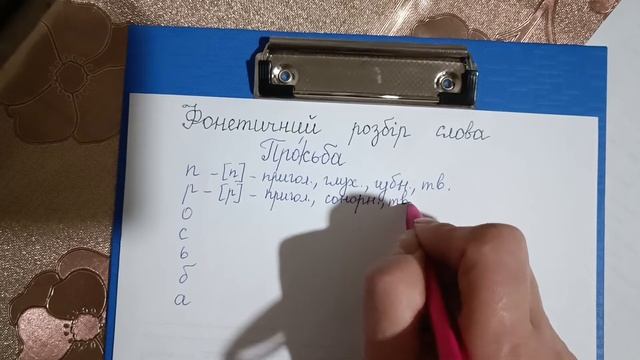 Фонетичний розбір слова
Про́сьба
п – [п] – пригол., глух., губн., тв.
р – [р] – пригол., сонорн., тв
о
с
ь
б
а